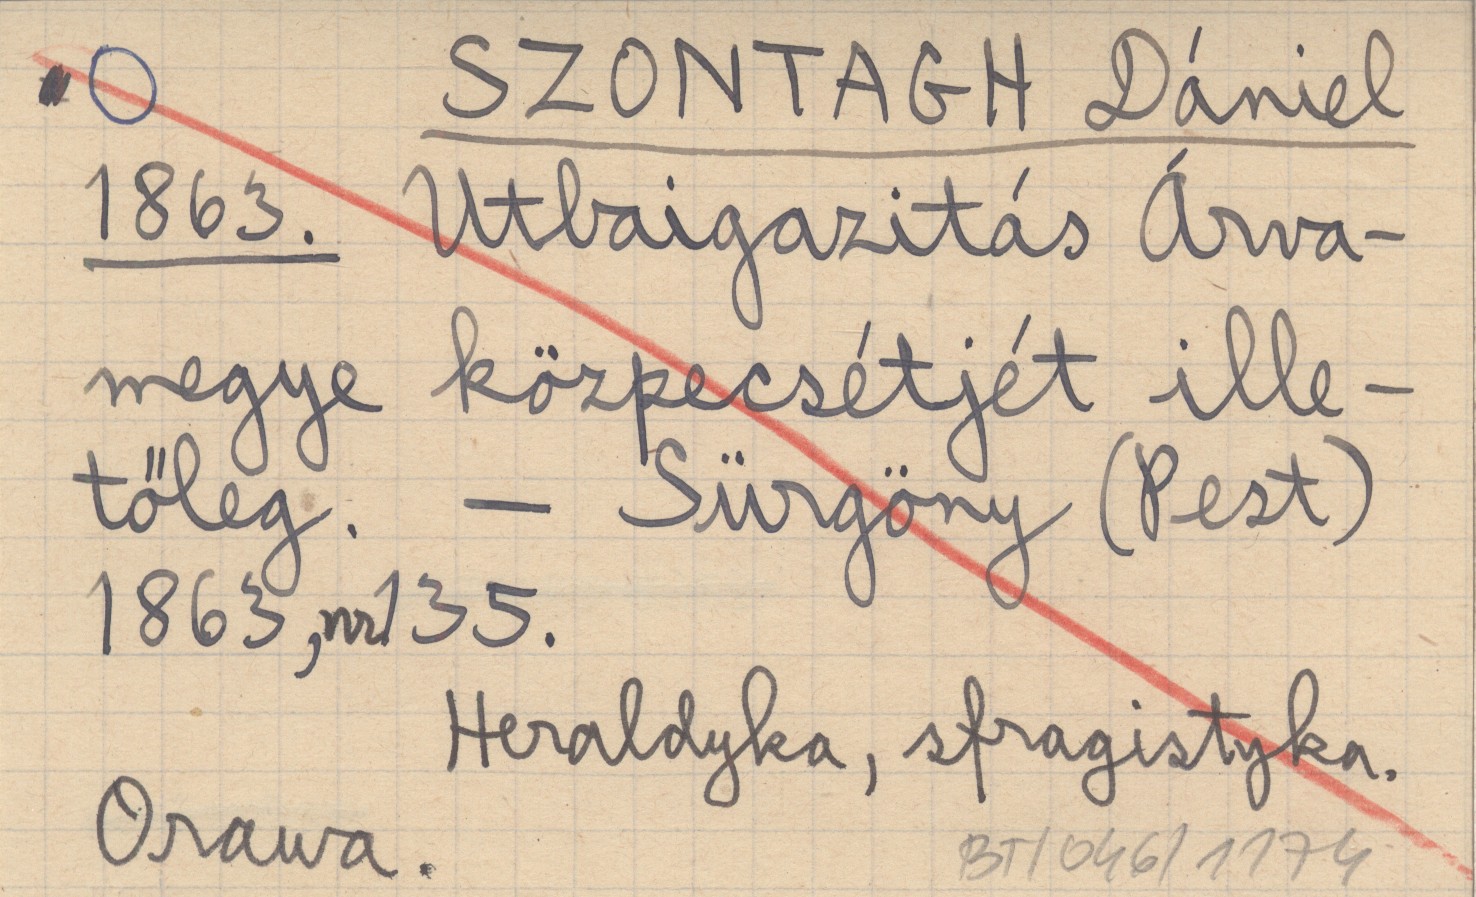 SZONTAGH Dániel
1863. Utbaigazitás Árva-
megye középecsétjét ille-
tőleg. — Sürgöny (Pest)
1863, nr 135.
Heraldyka, sfragistyka.
Orawa.
BT/046/1174